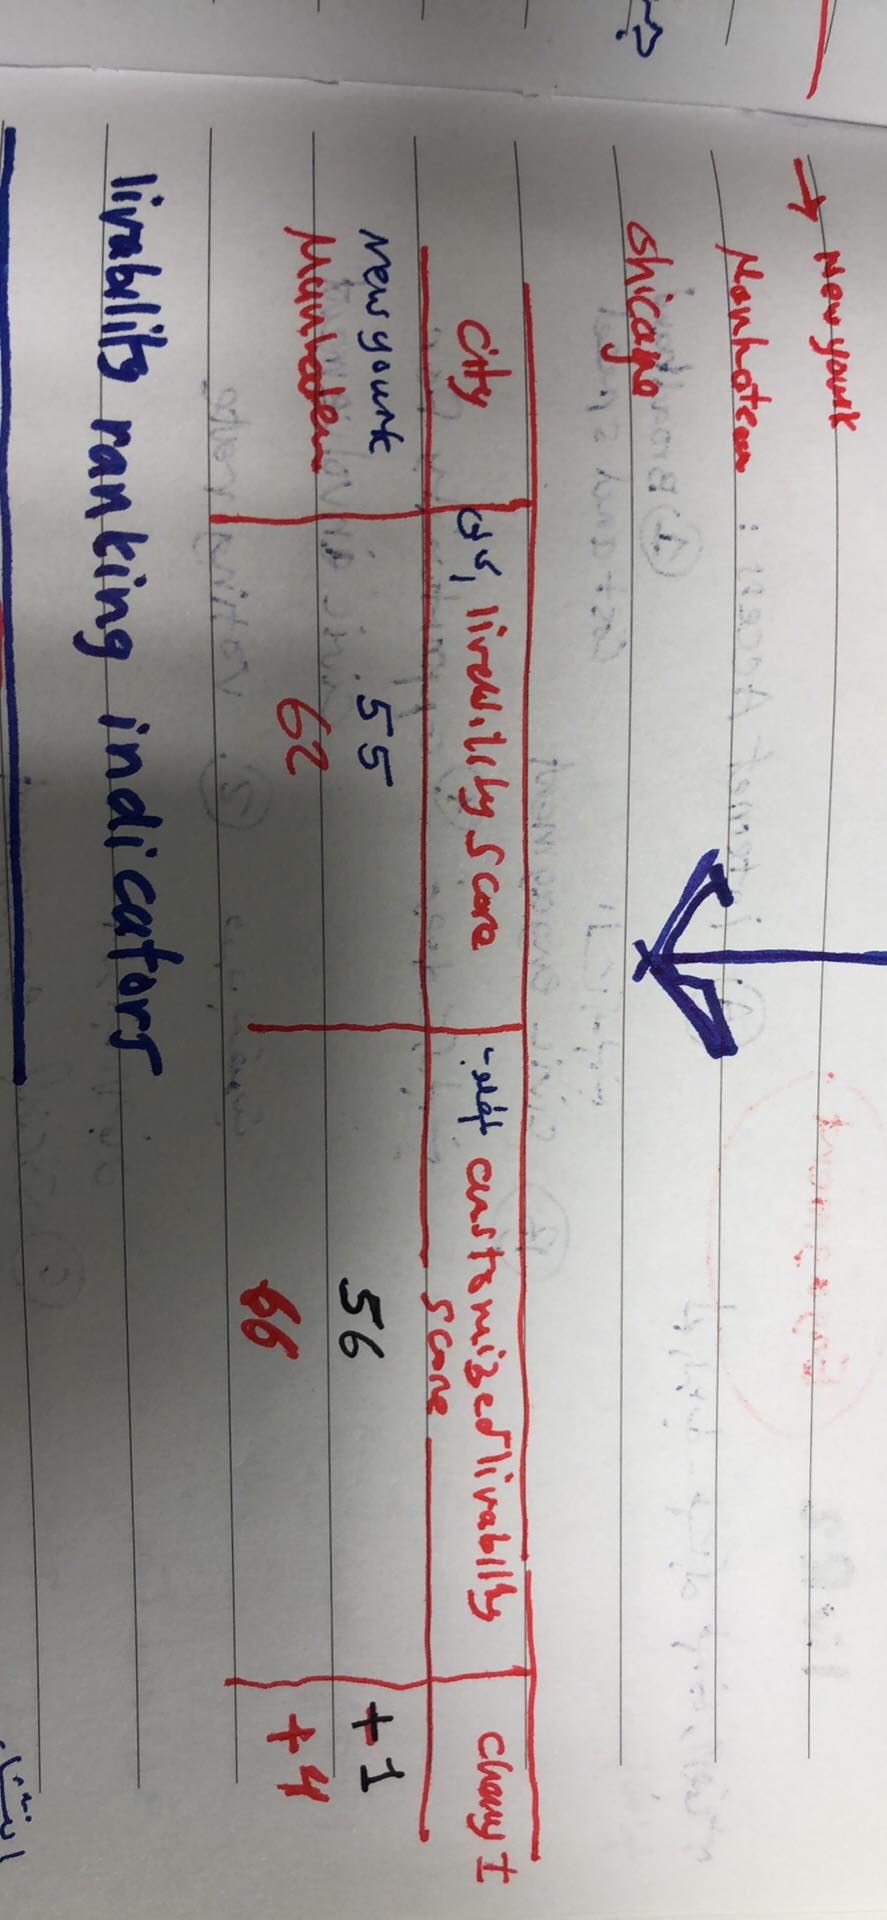 → New yourk
Manhateen
shicago
City | livability Score | customized livability score | chang ±
New yourk | 55 | 56 | +1
Manhaten | 62 | 66 | +4
livability ranking indicators